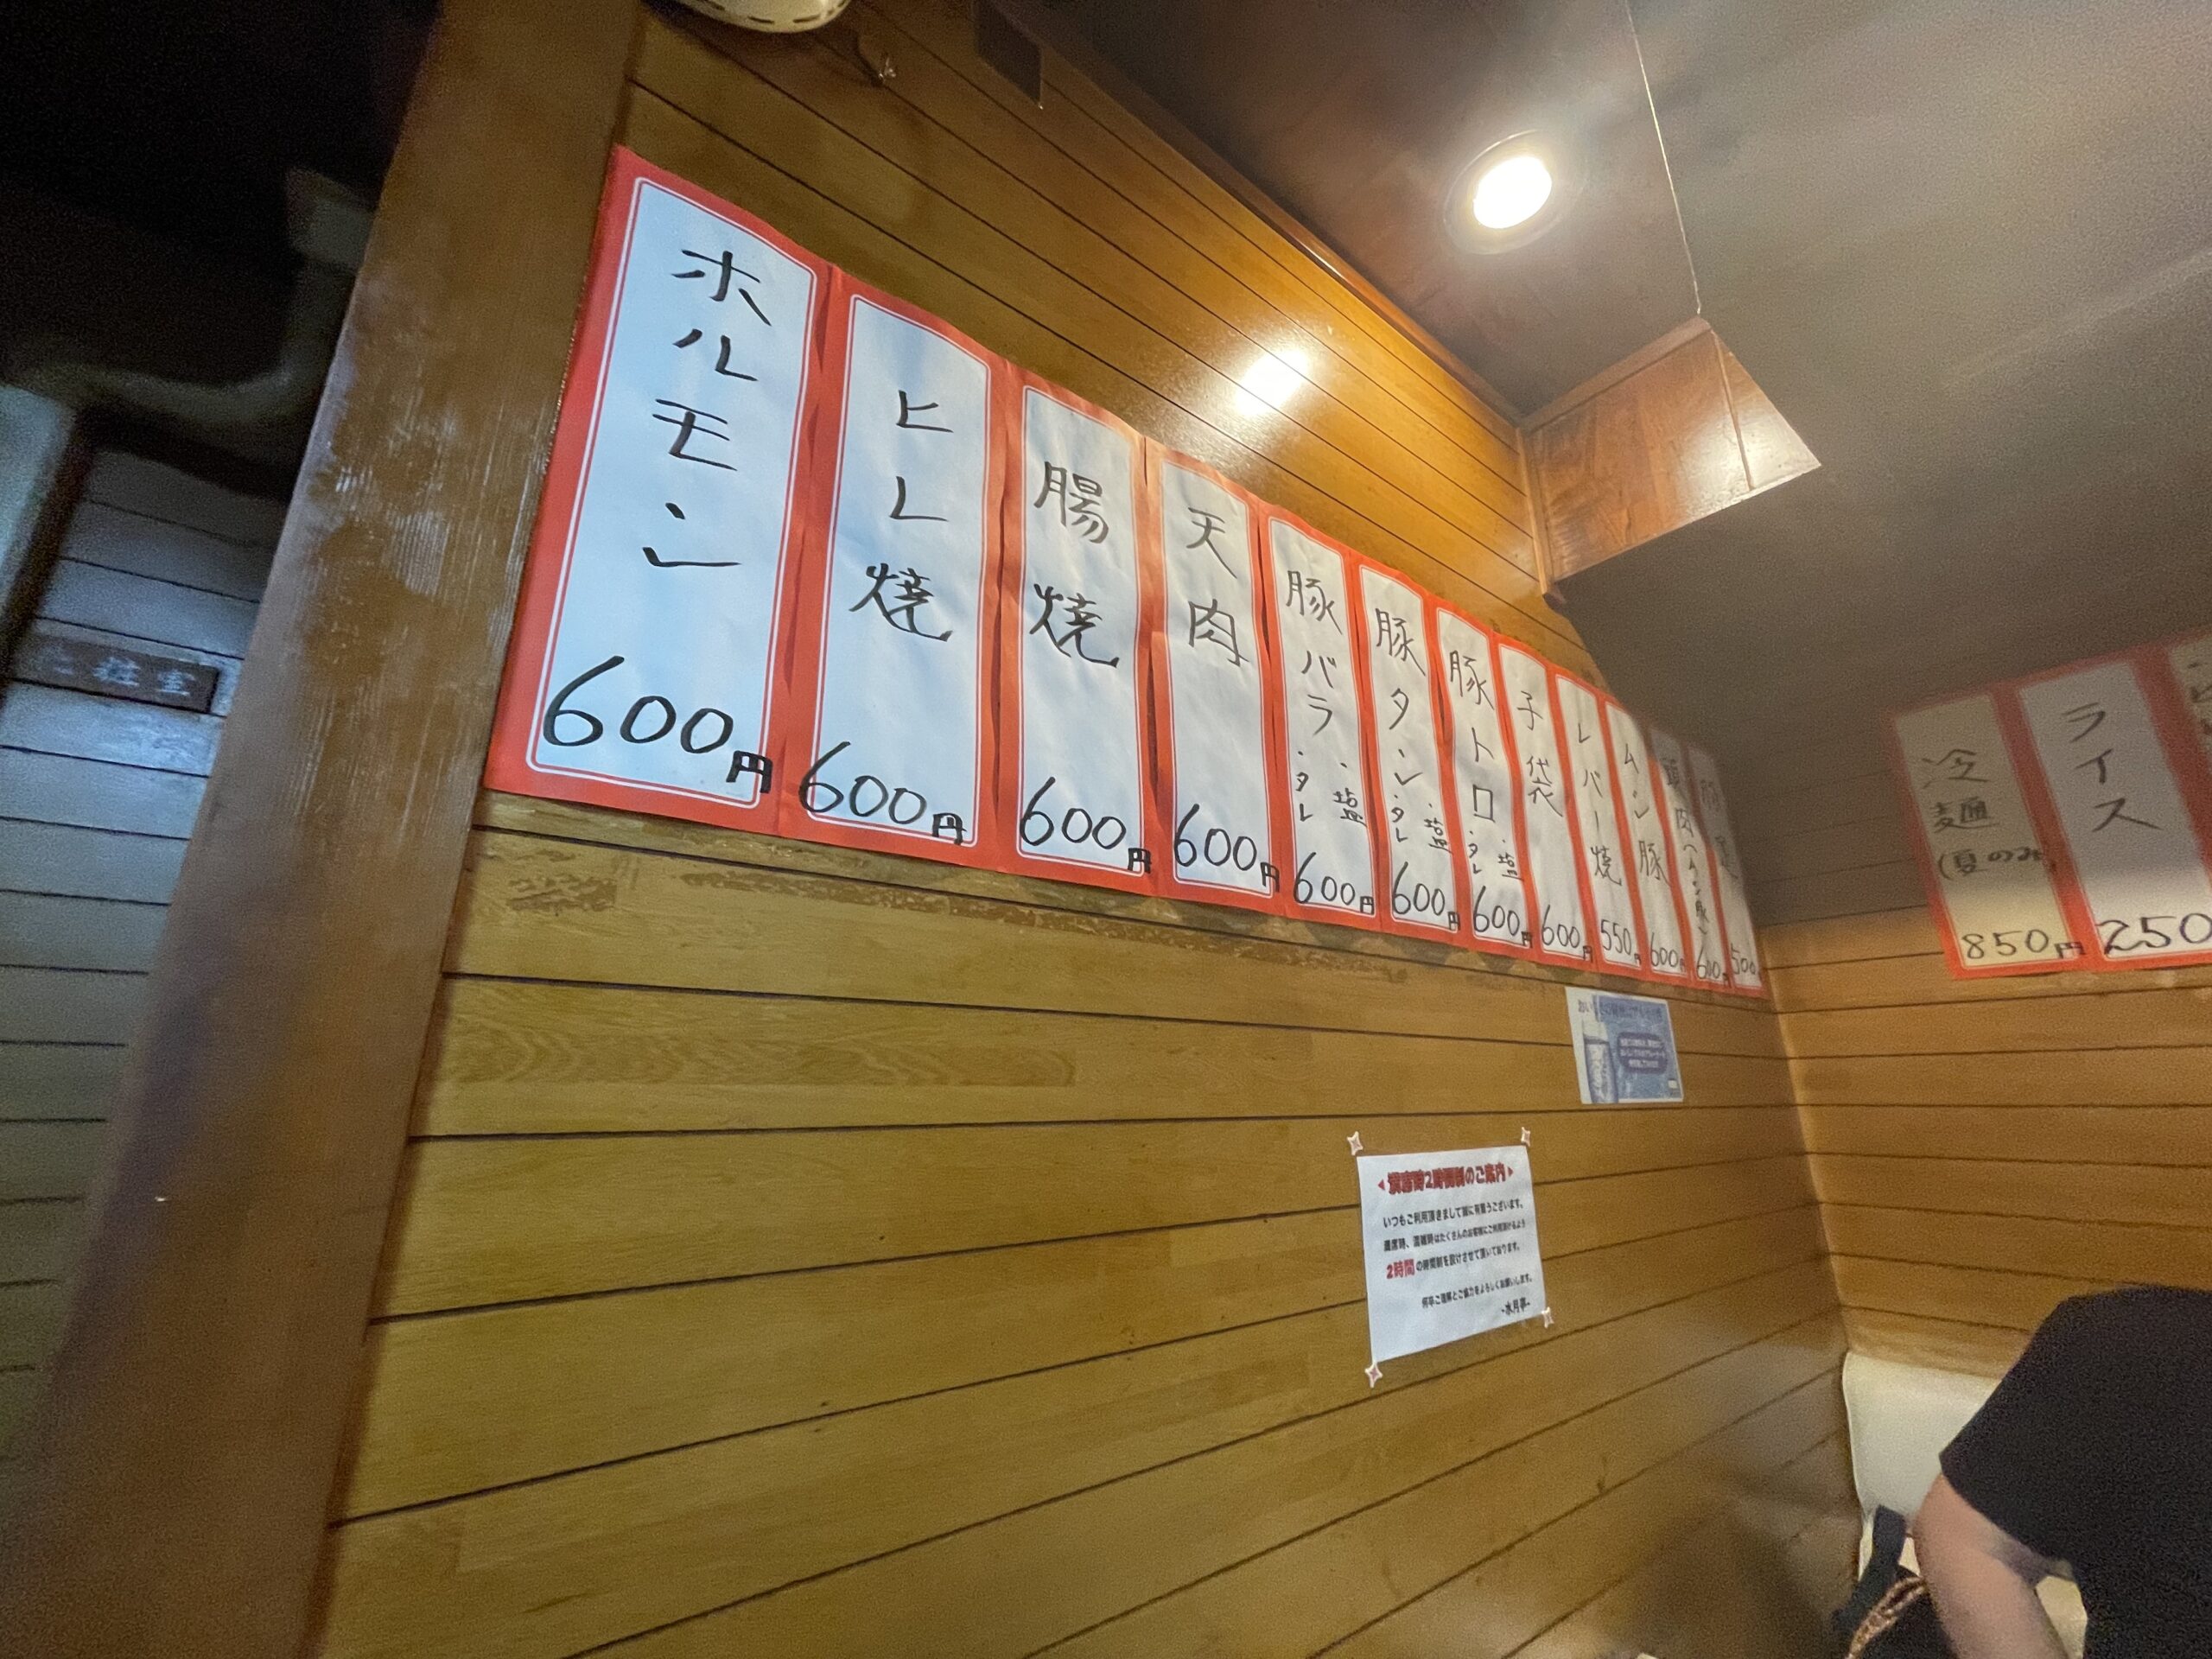 ホルモン
600円
ヒレ焼
600円
腸焼
600円
天肉
600円
豚バラ・タレ・塩
600円
豚タン・タレ・塩
600円
豚トロ・タレ・塩
600円
子袋
600円
レバー焼
550円
ムシ豚
600円
頭肉
600円
豚足
500
冷麺
(夏のみ)
850円
ライス
250
満席時2時間制のご案内
いつもご利用頂きまして誠に有難うございます。
満席時、混雑時はたくさんのお客様にご利用頂けるよう
2時間の時間制を設けさせて頂いております。
何卒ご理解とご協力をよろしくお願いします。
-水月亭-